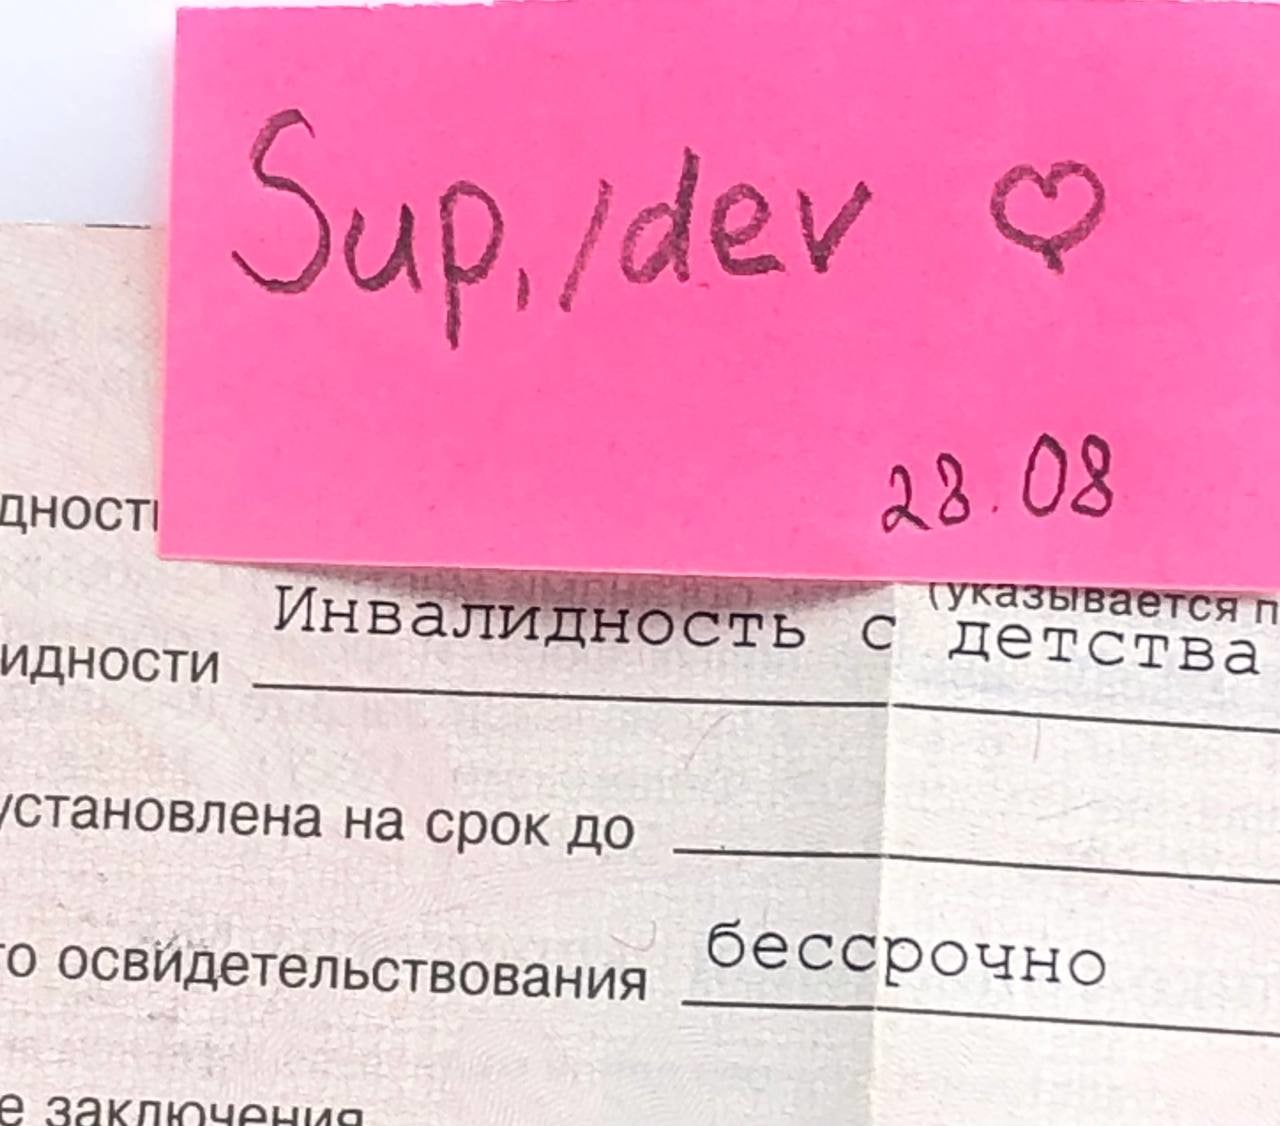 Sup, /dev ♡
28.08
(указывается
Инвалидность с детства
идности
установлена на срок до
освидетельствования бессрочно
заключения